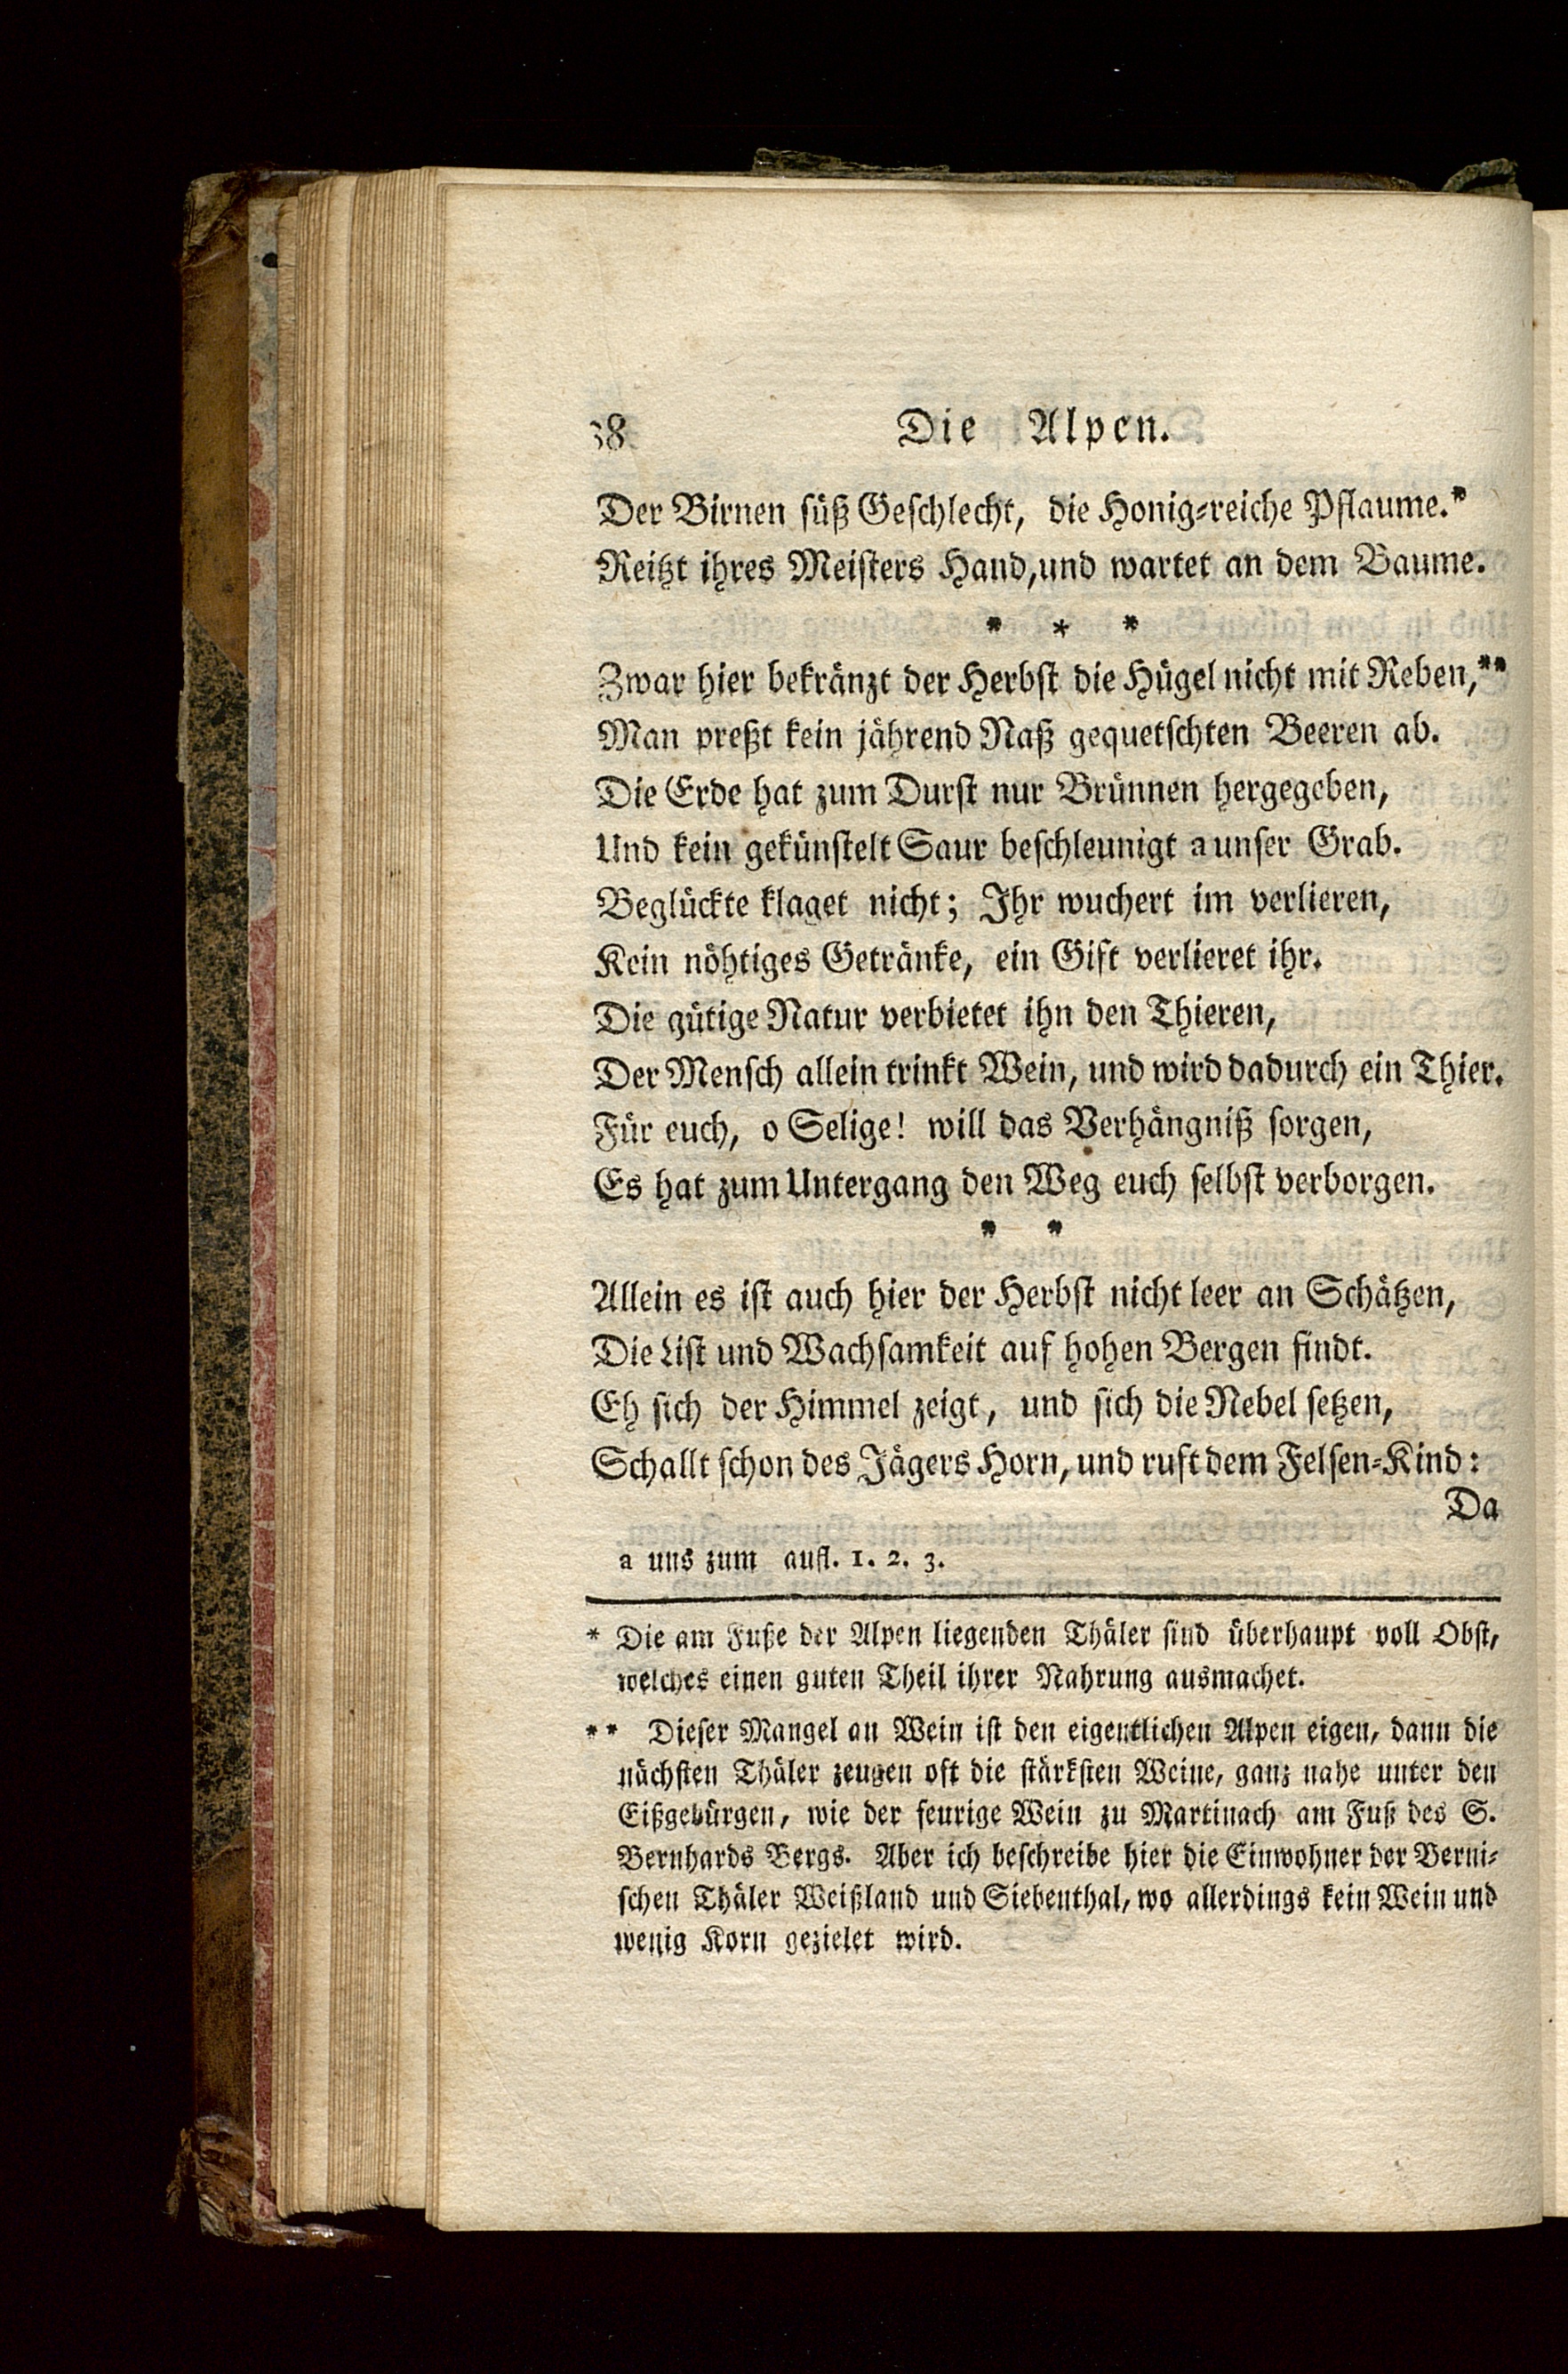 38 Die Alpen.
Der Birnen süß Geschlecht, die Honig-reiche Pflaume.*
Reitzt ihres Meisters Hand, und wartet an dem Baume.
* * *
Zwar hier bekränzt der Herbst die Hügel nicht mit Reben,**
Man preßt kein jährend Naß gequetschten Beeren ab.
Die Erde hat zum Durst nur Brünnen hergegeben,
Und kein gekünstelt Saur beschleunigt a unser Grab.
Beglückte klaget nicht; Ihr wuchert im verlieren,
Kein nöhtiges Getränke, ein Gift verlieret ihr.
Die gütige Natur verbietet ihn den Thieren,
Der Mensch allein trinkt Wein, und wird dadurch ein Thier.
Für euch, o Selige! will das Verhängniß sorgen,
Es hat zum Untergang den Weg euch selbst verborgen.
* *
Allein es ist auch hier der Herbst nicht leer an Schätzen,
Die List und Wachsamkeit auf hohen Bergen findt.
Eh sich der Himmel zeigt, und sich die Nebel setzen,
Schallt schon des Jägers Horn, und ruft dem Felsen-Kind:
Da
a uns zum aufl. 1. 2. 3.
* Die am Fuße der Alpen liegenden Thäler sind überhaupt voll Obst,
welches einen guten Theil ihrer Nahrung ausmachet.
** Dieser Mangel an Wein ist den eigentlichen Alpen eigen, dann die
nächsten Thäler zeugen oft die stärksten Weine, ganz nahe unter den
Eißgebürgen, wie der feurige Wein zu Martinach am Fuß des S.
Bernhards Bergs. Aber ich beschreibe hier die Einwohner der Berni-
schen Thäler Weißland und Siebenthal, wo allerdings kein Wein und
wenig Korn gezielet wird.